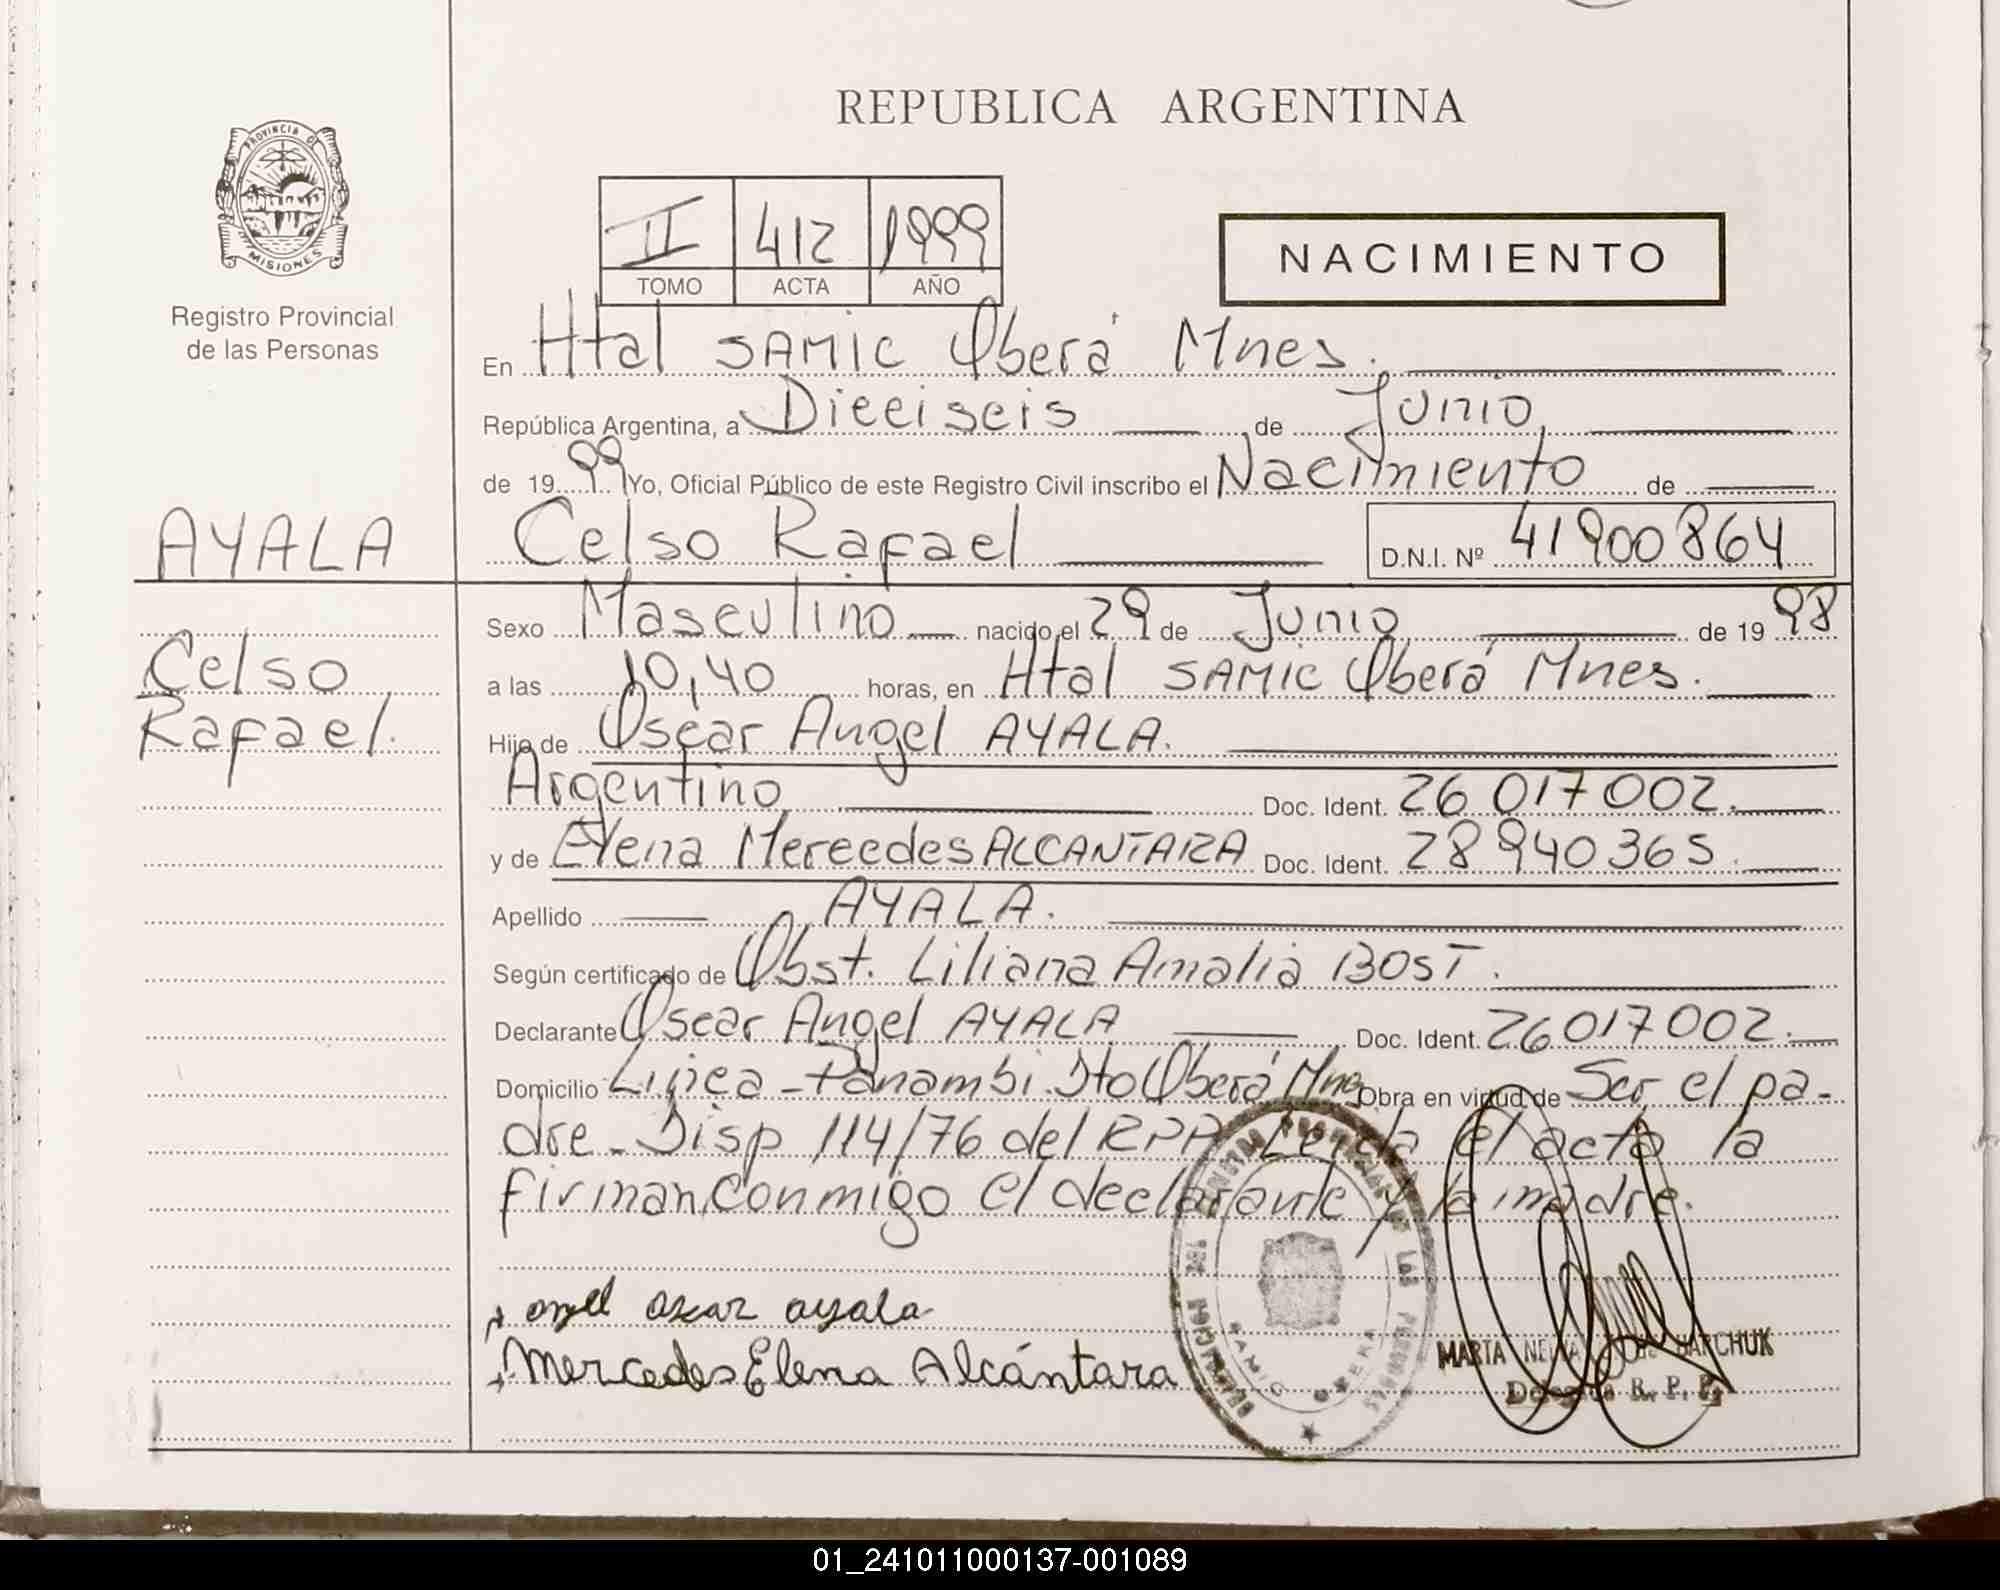 REPUBLICA ARGENTINA
PROVINCIA DE
MISIONES
Registro Provincial
de las Personas
II 412 1999
TOMO ACTA AÑO
NACIMIENTO
En Htal SAMIC Oberá Mnes.
República Argentina, a Dieciseis de Junio
de 1999 Yo, Oficial Público de este Registro Civil inscribo el Nacimiento de
AYALA
Celso Rafael D.N.I. Nº 41900864
Celso
Rafael.
Sexo Masculino nacido el 29 de Junio de 1998
a las 10,40 horas, en Htal SAMIC Oberá Mnes.
Hijo de Oscar Angel AYALA.
Argentino Doc. Ident. 26 017 002.
y de Elena Mercedes ALCANTARA Doc. Ident. 28 940 365.
Apellido AYALA.
Según certificado de Obst. Liliana Amalia BOST.
Declarante Oscar Angel AYALA Doc. Ident. 26 017 002.
Domicilio Linea - Panambi Dto Oberá Mnes Obra en virtud de Ser el pa-
dre - Disp 114/76 del RPP. Leida el acta la
firman conmigo el declarante y la madre.
angel oscar ayala
Mercedes Elena Alcántara
SAMIC OBERA
MARTA
Delegada R. P. P.
01_241011000137-001089